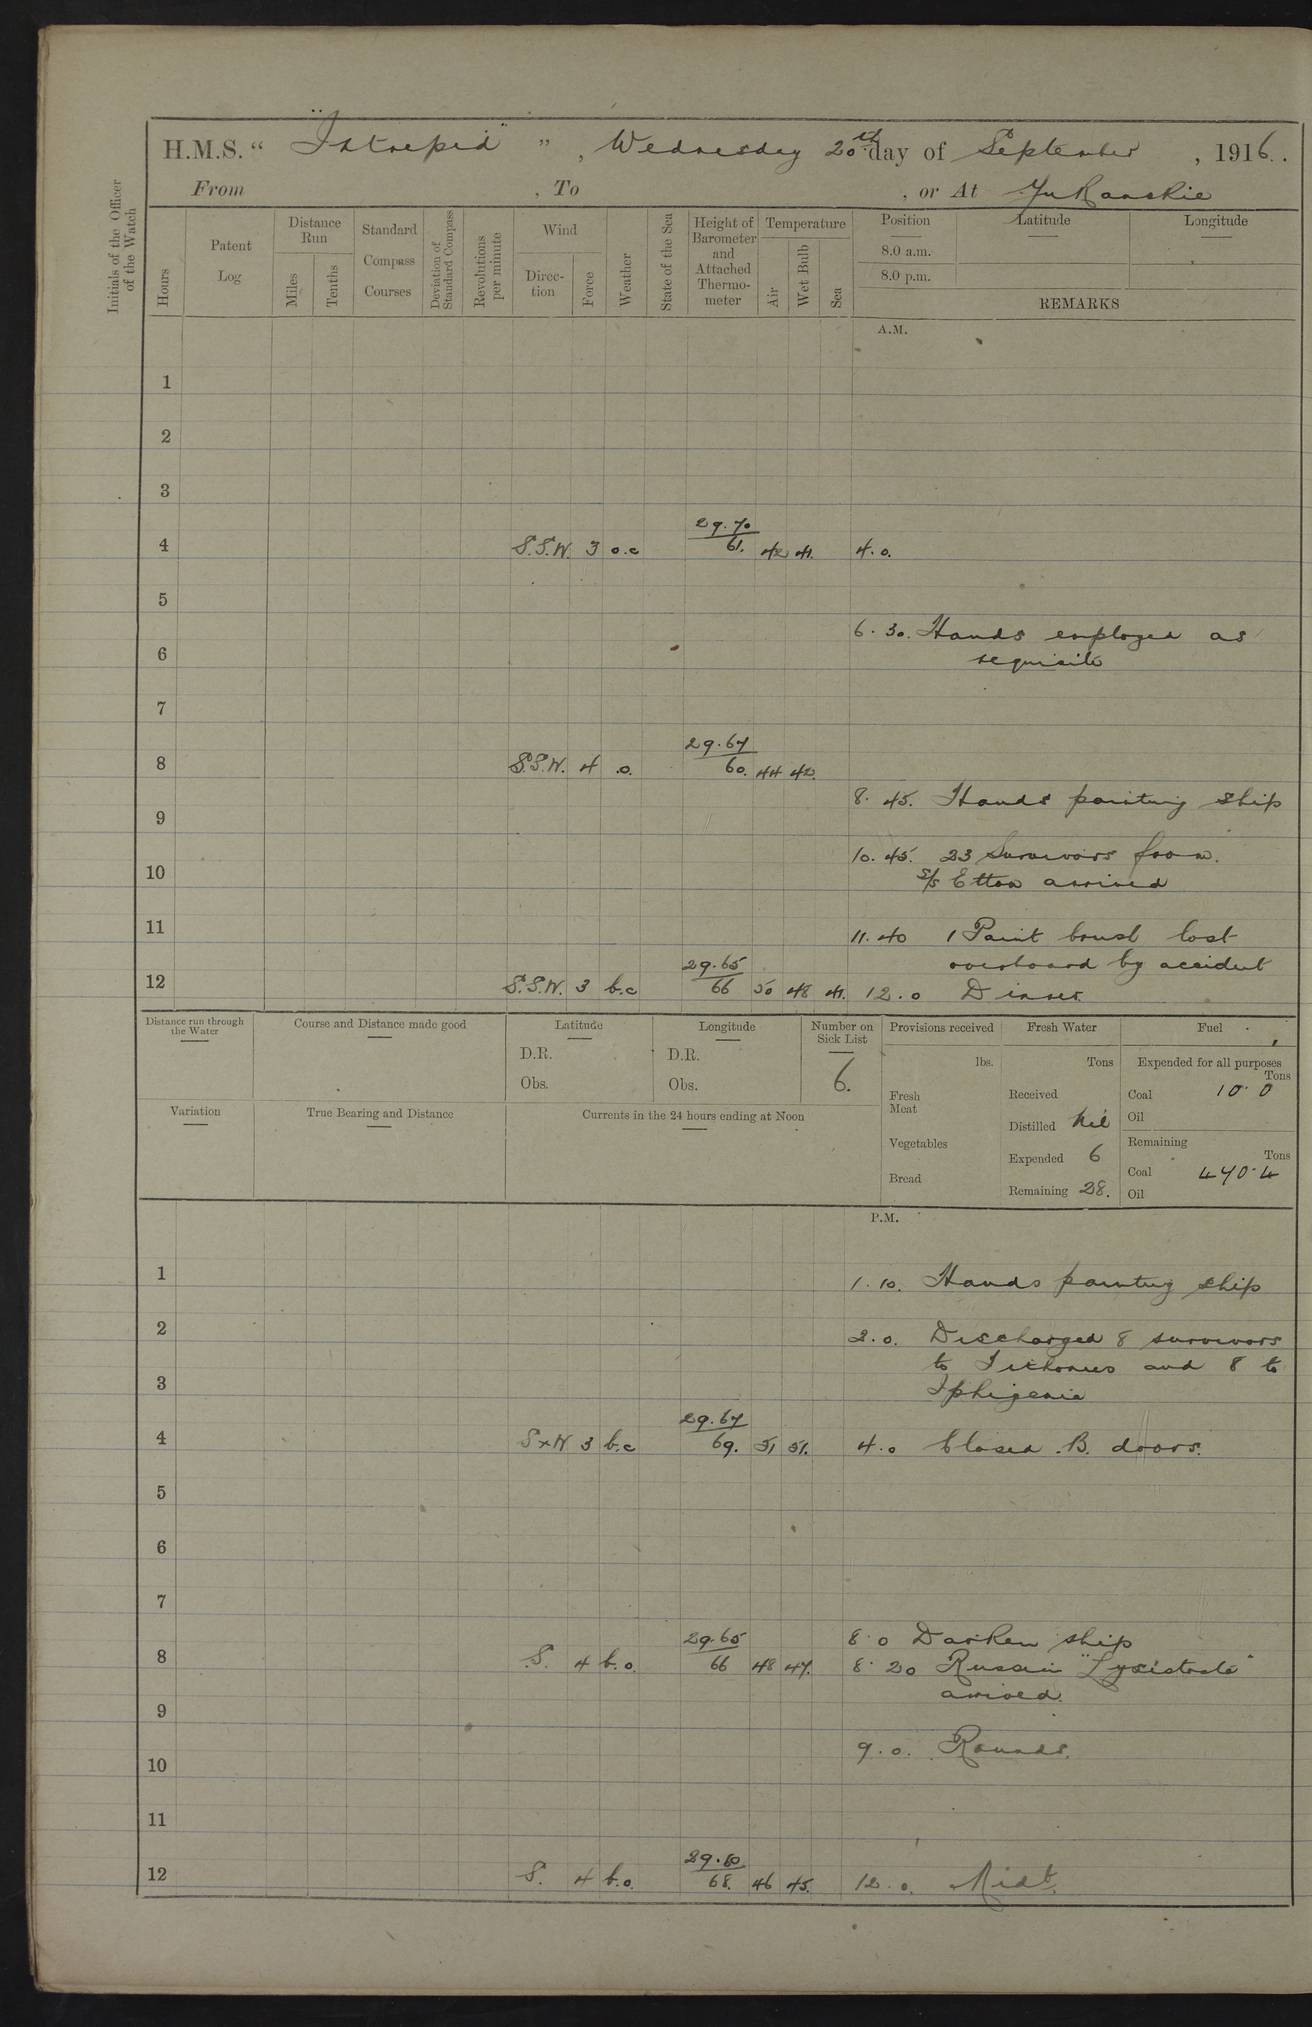 H.M.S. “ "Intrepid" ” , Wednesday 20th day of September , 1916.
From , To , or At Yukanskie
Initials of the Officer of the Watch
Hours
Patent Log
Distance Run
Miles
Tenths
Standard Compass Courses
Deviation of Standard Compass
Revolutions per minute
Wind
Direction
Force
Weather
State of the Sea
Height of Barometer and Attached Thermometer
Temperature
Air
Wet Bulb
Sea
Position
8.0 a.m.
8.0 p.m.
Latitude
Longitude
REMARKS
A.M.
1
2
3
29.70
4 S.S.W. 3 o.c 61. 42 41. 4.0.
5
6.30. Hands employed as
6 requisite
7
29.67
8 S.S.W. 4 .o. 60. 44 42.
8.45. Hands painting ship
9
10.45. 23 Survivors from
10 S/S Etton arrived
11 11.40 1 Paint brush lost
29.65 overboard by accident
12 S.S.W. 3 b.c 66 50 48 41. 12.0 Dinner
Distance run through the Water
Course and Distance made good
Latitude
D.R.
Obs.
Longitude
D.R.
Obs.
Number on Sick List
6.
Provisions received
lbs.
Fresh Meat
Vegetables
Bread
Fresh Water
Tons
Received
Distilled Nil
Expended 6
Remaining 28.
Fuel
Expended for all purposes
Tons
Coal 10.0
Oil
Remaining
Tons
Coal 470.4
Oil
Variation
True Bearing and Distance
Currents in the 24 hours ending at Noon
P.M.
1 1.10. Hands painting ship
2 2.0. Discharged 8 survivors
to Tithonus and 8 to
3 Iphigenia
29.67
4 SxW 3 b.c 69. 51 51. 4.0 Closed .B. doors.
5
6
7
29.65 8.0 Darken ship
8 S. 4 b.o. 66 48 47. 8.20 Russian "Lysistrata"
arrived.
9
9.0. Rounds.
10
11
29.60
12 S. 4 b.o. 68. 46 45. 12.0. Midt.